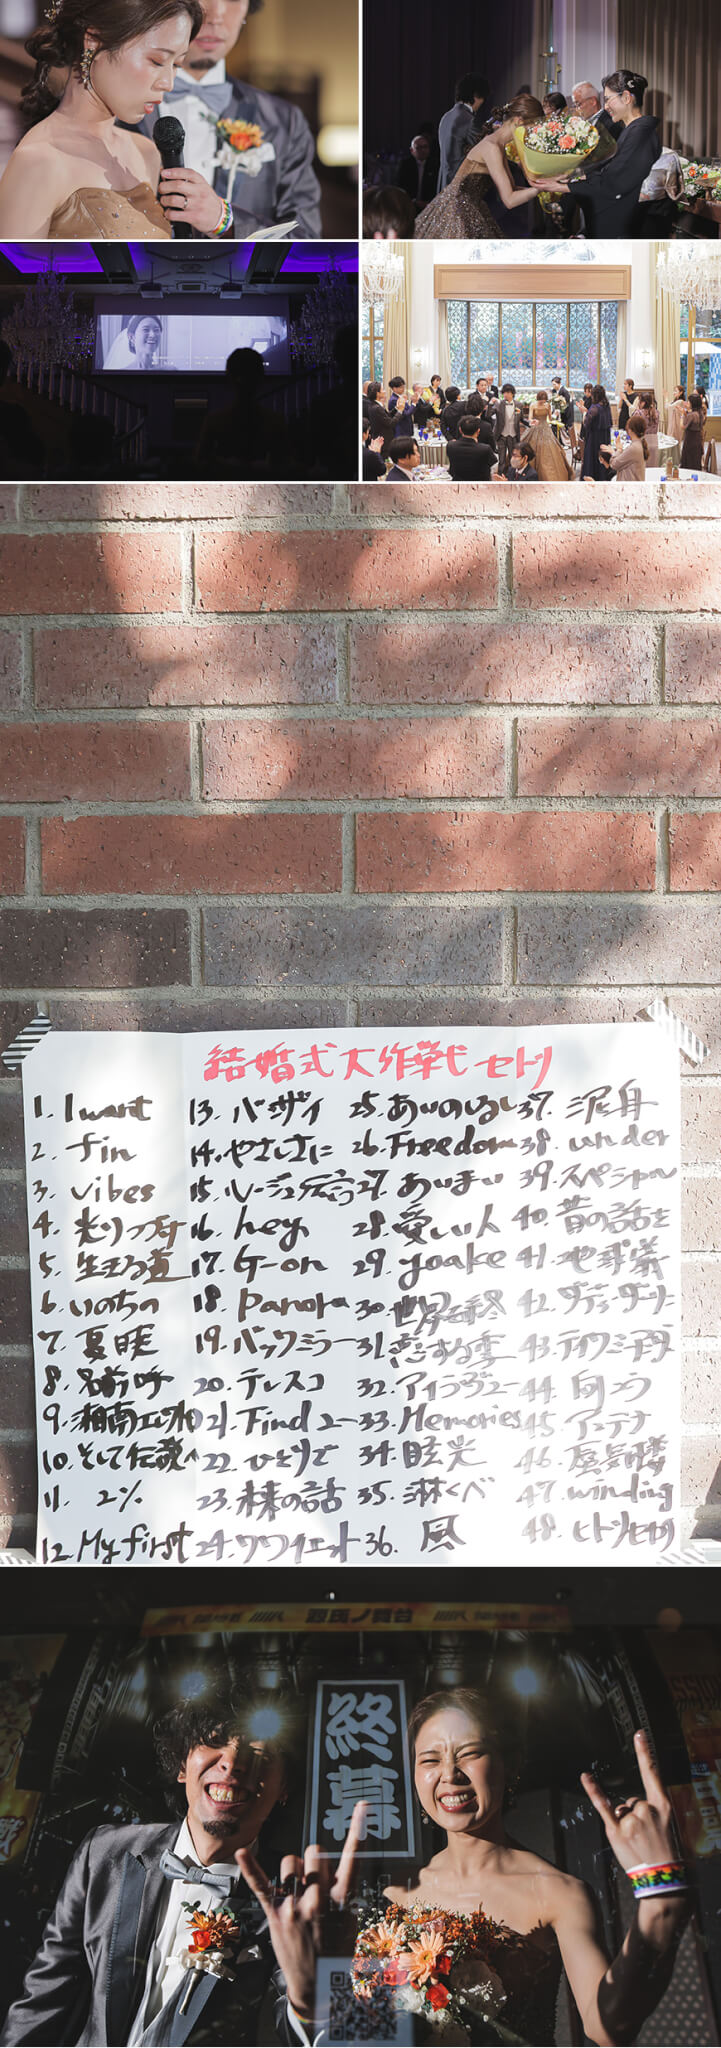 結婚式大作戦セトリ
1. I want
2. fin
3. vibes
4. 光りつづけ
5. 生きる道
6. いのちの
7. 夏暁
8. 名前呼
9. 湘南エレクト
10. そして伝説へ
11. 2%
12. My first
13. バンザイ
14. やさしさに
15. ルージュの伝言
16. hey,
17. G-on
18. Panora
19. バックミラー
20. テレスコ
21. Find ユー
22. ひとりで
23. 未来の話
24. ワワイエット
25. あいのしるし
26. Freedom
27. あいまい
28. 愛しい人
29. yoake
30. 世界の終
31. 恋する季
32. アイラヴユー
33. Memories
34. 眩光
35. 淋くべ
36. 風
37. 渾身
38. under
39. スペシャル
40. 昔の話を
41. 地球儀
42. ダディ・ダーリに
43. ティワミ
44. 向こう
45. アンテナ
46. 蜃気楼
47. winding
48. ヒトリセカイ
源田ノ舞台
終幕